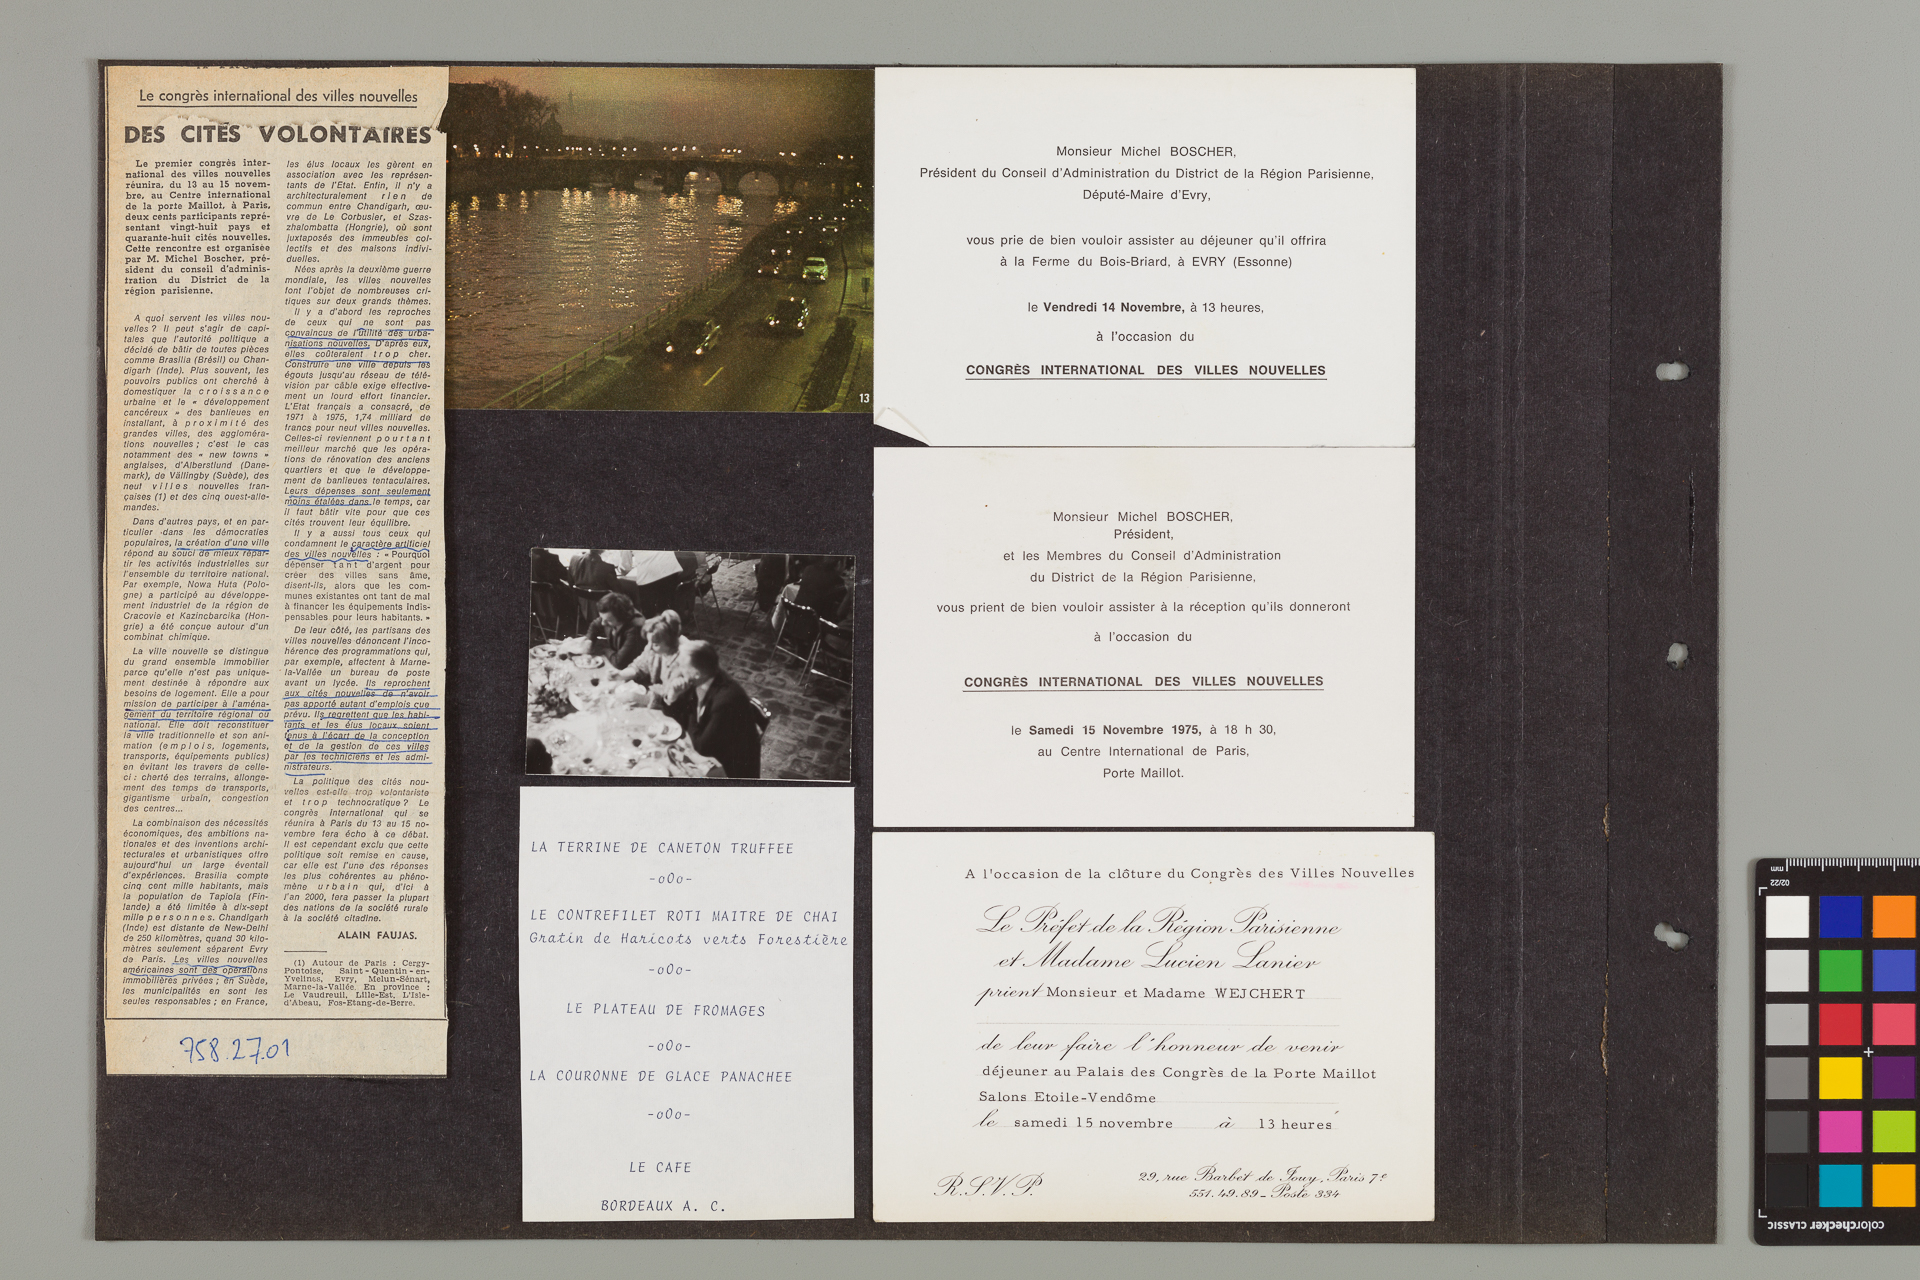 Le congrès international des villes nouvelles
DES CITÉS VOLONTAIRES
Le premier congrès inter-
national des villes nouvelles
réunira, du 13 au 15 novem-
bre, au Centre international
de la porte Maillot, à Paris,
deux cents participants repré-
sentant vingt-huit pays et
quarante-huit cités nouvelles.
Cette rencontre est organisée
par M. Michel Boscher, pré-
sident du conseil d'adminis-
tration du District de la
région parisienne.
A quoi servent les villes nou-
velles ? Il peut s'agir de capi-
tales que l'autorité politique a
décidé de bâtir de toutes pièces
comme Brasilia (Brésil) ou Chan-
digarh (Inde). Plus souvent, les
pouvoirs publics ont cherché à
domestiquer la croissance
urbaine et le « développement
cancéreux » des banlieues en
installant, à proximité des
grandes villes, des aggloméra-
tions nouvelles ; c'est le cas
notamment des « new towns »
anglaises, d'Alberstlund (Dane-
mark), de Vällingby (Suède), des
neuf villes nouvelles fran-
çaises (1) et des cinq ouest-alle-
mandes.
Dans d'autres pays, et en par-
ticulier dans les démocraties
populaires, la création d'une ville
répond au souci de mieux répar-
tir les activités industrielles sur
l'ensemble du territoire national.
Par exemple, Nowa Huta (Polo-
gne) a participé au développe-
ment industriel de la région de
Cracovie et Kazincbarcika (Hon-
grie) a été conçue autour d'un
combinat chimique.
La ville nouvelle se distingue
du grand ensemble immobilier
parce qu'elle n'est pas unique-
ment destinée à répondre aux
besoins de logement. Elle a pour
mission de participer à l'aména-
gement du territoire régional ou
national. Elle doit reconstituer
la ville traditionnelle et son ani-
mation (emplois, logements,
transports, équipements publics)
en évitant les travers de celle-
ci : cherté des terrains, allonge-
ment des temps de transports,
gigantisme urbain, congestion
des centres...
La combinaison des nécessités
économiques, des ambitions na-
tionales et des inventions archi-
tecturales et urbanistiques offre
aujourd'hui un large éventail
d'expériences. Brasilia compte
cinq cent mille habitants, mais
la population de Tapiola (Fin-
lande) a été limitée à dix-sept
mille personnes. Chandigarh
(Inde) est distante de New-Delhi
de 250 kilomètres, quand 30 kilo-
mètres seulement séparent Evry
de Paris. Les villes nouvelles
américaines sont des opérations
immobilières privées ; en Suède,
les municipalités en sont les
seules responsables ; en France,
les élus locaux les gèrent en
association avec les représen-
tants de l'Etat. Enfin, il n'y a
architecturalement rien de
commun entre Chandigarh, œu-
vre de Le Corbusier, et Szas-
zhalombatta (Hongrie), où sont
juxtaposés des immeubles col-
lectifs et des maisons indivi-
duelles.
Nées après la deuxième guerre
mondiale, les villes nouvelles
font l'objet de nombreuses cri-
tiques sur deux grands thèmes.
Il y a d'abord les reproches
de ceux qui ne sont pas
convaincus de l'utilité des urba-
nisations nouvelles. D'après eux,
elles coûteraient trop cher.
Construire une ville depuis les
égouts jusqu'au réseau de télé-
vision par câble exige effective-
ment un lourd effort financier.
L'Etat français a consacré, de
1971 à 1975, 1,74 milliard de
francs pour neuf villes nouvelles.
Celles-ci reviennent pourtant
meilleur marché que les opéra-
tions de rénovation des anciens
quartiers et que le développe-
ment de banlieues tentaculaires.
Leurs dépenses sont seulement
moins étalées dans le temps, car
il faut bâtir vite pour que ces
cités trouvent leur équilibre.
Il y a aussi tous ceux qui
condamnent le caractère artificiel
des villes nouvelles : « Pourquoi
dépenser tant d'argent pour
créer des villes sans âme,
disent-ils, alors que les com-
munes existantes ont tant de mal
à financer les équipements indis-
pensables pour leurs habitants. »
De leur côté, les partisans des
villes nouvelles dénoncent l'inco-
hérence des programmations qui,
par exemple, affectent à Marne-
la-Vallée un bureau de poste
avant un lycée. Ils reprochent
aux cités nouvelles de n'avoir
pas apporté autant d'emplois que
prévu. Ils regrettent que les habi-
tants et les élus locaux soient
tenus à l'écart de la conception
et de la gestion de ces villes
par les techniciens et les admi-
nistrateurs.
La politique des cités nou-
velles est-elle trop volontariste
et trop technocratique ? Le
congrès international qui se
réunira à Paris du 13 au 15 no-
vembre fera écho à ce débat.
Il est cependant exclu que cette
politique soit remise en cause,
car elle est l'une des réponses
les plus cohérentes au phéno-
mène urbain qui, d'ici à
l'an 2000, fera passer la plupart
des nations de la société rurale
à la société citadine.
ALAIN FAUJAS.
(1) Autour de Paris : Cergy-
Pontoise, Saint-Quentin-en-
Yvelines, Evry, Melun-Sénart,
Marne-la-Vallée. En province :
Le Vaudreuil, Lille-Est, L'Isle-
d'Abeau, Fos-Etang-de-Berre.
758.27.01
13
LA TERRINE DE CANETON TRUFFEE
-oOo-
LE CONTREFILET ROTI MAITRE DE CHAI
Gratin de Haricots verts Forestière
-oOo-
LE PLATEAU DE FROMAGES
-oOo-
LA COURONNE DE GLACE PANACHEE
-oOo-
LE CAFE
BORDEAUX A. C.
Monsieur Michel BOSCHER,
Président du Conseil d'Administration du District de la Région Parisienne,
Député-Maire d'Evry,
vous prie de bien vouloir assister au déjeuner qu'il offrira
à la Ferme du Bois-Briard, à EVRY (Essonne)
le Vendredi 14 Novembre, à 13 heures,
à l'occasion du
CONGRÈS INTERNATIONAL DES VILLES NOUVELLES
Monsieur Michel BOSCHER,
Président,
et les Membres du Conseil d'Administration
du District de la Région Parisienne,
vous prient de bien vouloir assister à la réception qu'ils donneront
à l'occasion du
CONGRÈS INTERNATIONAL DES VILLES NOUVELLES
le Samedi 15 Novembre 1975, à 18 h 30,
au Centre International de Paris,
Porte Maillot.
A l'occasion de la clôture du Congrès des Villes Nouvelles
Le Préfet de la Région Parisienne
et Madame Lucien Lanier
prient Monsieur et Madame WEJCHERT
de leur faire l'honneur de venir
déjeuner au Palais des Congrès de la Porte Maillot
Salons Etoile-Vendôme
le samedi 15 novembre à 13 heures
R.S.V.P.
29, rue Barbet de Jouy, Paris 7e
551.49.89 - Poste 334
mm
02/22
colorchecker CLASSIC